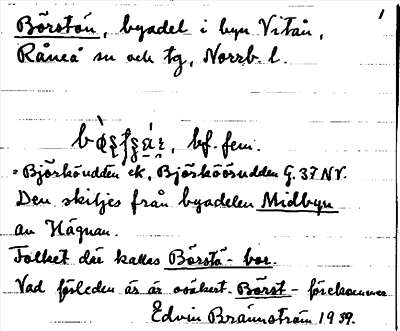 1
Börstön, byadel i byn Vitån,
Råneå sn och tg, Norrb. l.
bf. fem.
= Björköudden ek. Björkööudden G. 37 NV.
Den skiljes från byadelen Midbyn
av Hägnan.
Folket där kallas Börstö-bor.
Vad förleden är är osäkert. Börst- förekommer
Edvin Brännström 1939.